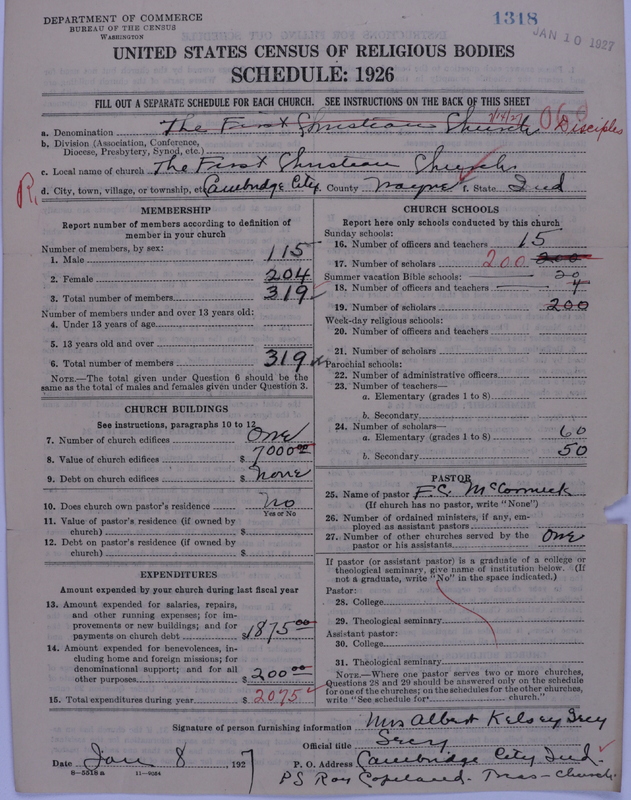 DEPARTMENT OF COMMERCE
BUREAU OF THE CENSUS
WASHINGTON
1318
JAN 10 1927
UNITED STATES CENSUS OF RELIGIOUS BODIES
SCHEDULE: 1926
FILL OUT A SEPARATE SCHEDULE FOR EACH CHURCH. SEE INSTRUCTIONS ON THE BACK OF THIS SHEET
a. Denomination The First Christian Church Disciples
b. Division (Association, Conference,
Diocese, Presbytery, Synod, etc.)
c. Local name of church The First Christian Church
R,
d. City, town, village, or township, etc. Cambridge City County Wayne f. State Ind
MEMBERSHIP
Report number of members according to definition of
member in your church
Number of members, by sex:
1. Male 115
2. Female 204
3. Total number of members 319
Number of members under and over 13 years old:
4. Under 13 years of age
5. 13 years old and over
6. Total number of members 319
NOTE.—The total given under Question 6 should be the
same as the total of males and females given under Question 3.
CHURCH BUILDINGS
See instructions, paragraphs 10 to 12
7. Number of church edifices One
8. Value of church edifices $ 7000 00
9. Debt on church edifices $ none
10. Does church own pastor's residence No
Yes or No
11. Value of pastor's residence (if owned by
church) $
12. Debt on pastor's residence (if owned by
church) $
EXPENDITURES
Amount expended by your church during last fiscal year
13. Amount expended for salaries, repairs,
and other running expenses; for im-
provements or new buildings; and for
payments on church debt $ 1875 00
14. Amount expended for benevolences, in-
cluding home and foreign missions; for
denominational support; and for all
other purposes $ 200 00
15. Total expenditures during year $ 2075
CHURCH SCHOOLS
Report here only schools conducted by this church
Sunday schools:
16. Number of officers and teachers 15
17. Number of scholars 200 200
Summer vacation Bible schools: 20
18. Number of officers and teachers 4
19. Number of scholars 200
Week-day religious schools:
20. Number of officers and teachers
21. Number of scholars
Parochial schools:
22. Number of administrative officers
23. Number of teachers—
a. Elementary (grades 1 to 8)
b. Secondary
24. Number of scholars—
a. Elementary (grades 1 to 8) 60
b. Secondary 50
PASTOR
25. Name of pastor F.C. McCormick
(If church has no pastor, write "None")
26. Number of ordained ministers, if any, em-
ployed as assistant pastors
27. Number of other churches served by the
pastor or his assistants One
If pastor (or assistant pastor) is a graduate of a college or
theological seminary, give name of institution below. (If
not a graduate, write "No" in the space indicated.)
Pastor:
28. College
29. Theological seminary
Assistant pastor:
30. College
31. Theological seminary
NOTE.—Where one pastor serves two or more churches,
Questions 28 and 29 should be answered only on the schedule
for one of the churches; on the schedules for the other churches,
write "See schedule for church."
Signature of person furnishing information Mrs Albert Kelsey Secy
Official title Secy
Date Jan 8, 1927 P. O. Address Cambridge City Ind.
8-5518 a 11-9084
PS Roy Copeland. Treas-Church.